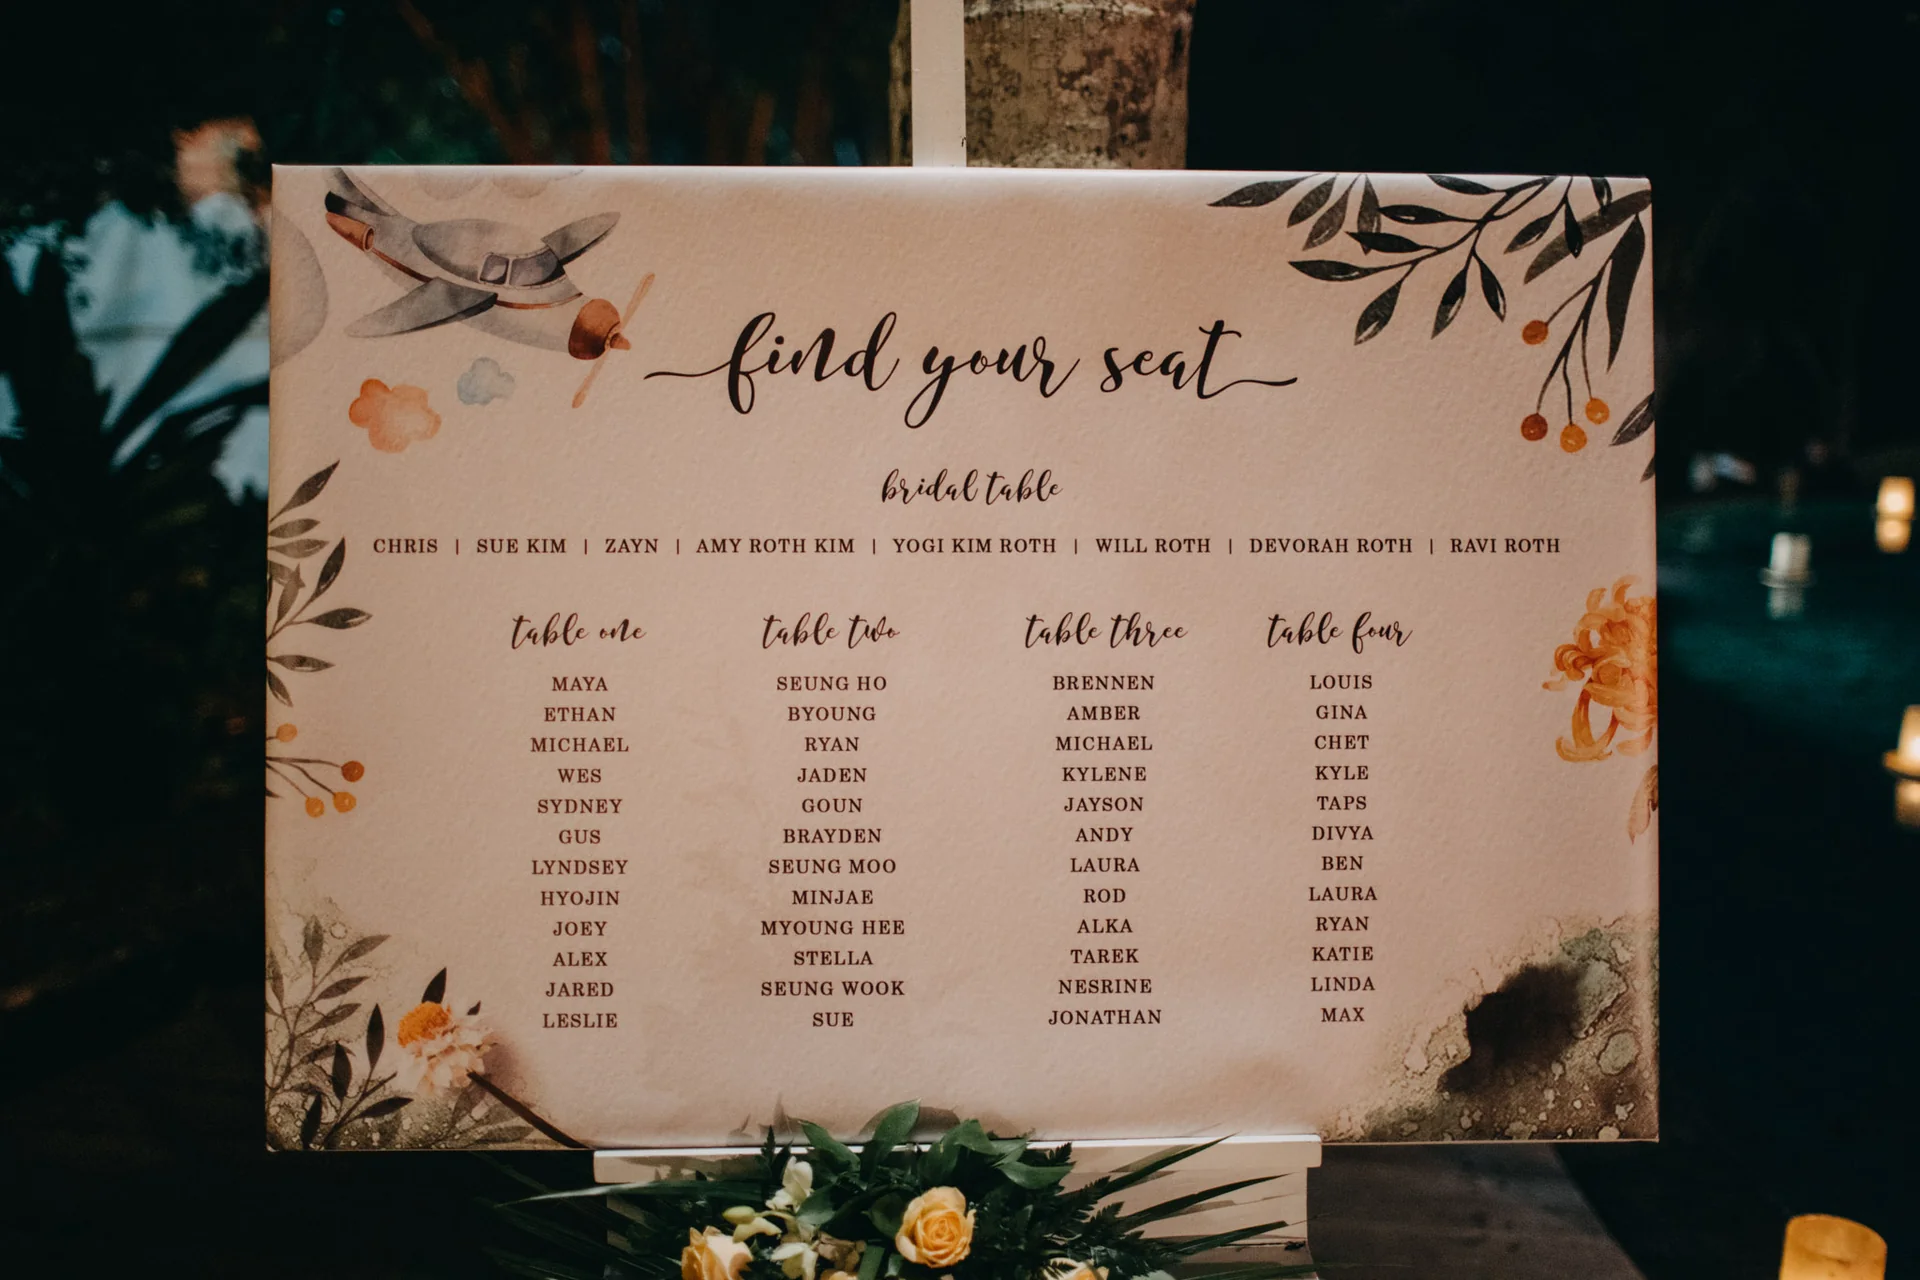 find your seat
bridal table
CHRIS | SUE KIM | ZAYN | AMY ROTH KIM | YOGI KIM ROTH | WILL ROTH | DEVORAH ROTH | RAVI ROTH
table one
MAYA
ETHAN
MICHAEL
WES
SYDNEY
GUS
LYNDSEY
HYOJIN
JOEY
ALEX
JARED
LESLIE
table two
SEUNG HO
BYOUNG
RYAN
JADEN
GOUN
BRAYDEN
SEUNG MOO
MINJAE
MYOUNG HEE
STELLA
SEUNG WOOK
SUE
table three
BRENNEN
AMBER
MICHAEL
KYLENE
JAYSON
ANDY
LAURA
ROD
ALKA
TAREK
NESRINE
JONATHAN
table four
LOUIS
GINA
CHET
KYLE
TAPS
DIVYA
BEN
LAURA
RYAN
KATIE
LINDA
MAX